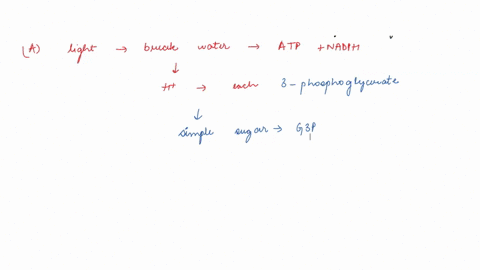 (A) light → break water → ATP + NADPH
↓
H+ → each 3-phosphoglycerate
↓
simple sugar → G3P